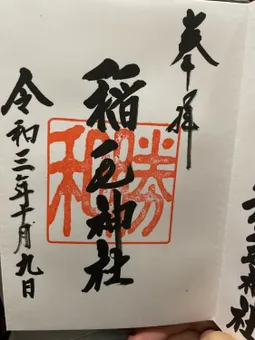 奉拝
勝
和
稲毛神社
令和三年十月九日
神社